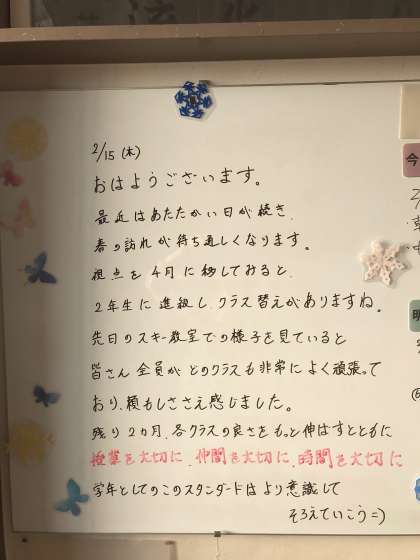 2/15 (木)
おはようございます。
最近はあたたかい日が続き、
春の訪れが待ち遠しくなります。
視点を4月に移してみると、
2年生に進級し、クラス替えがありますね。
先日のスキー教室での様子を見ていると
皆さん全員が どのクラスも非常によく頑張って
おり、頼もしささえ感じました。
残り2カ月、各クラスの良さをもっと伸ばすとともに
授業を大切に、仲間を大切に、時間を大切に
学年としてのこのスタンダードはより意識して
そろえていこう=)
今
明